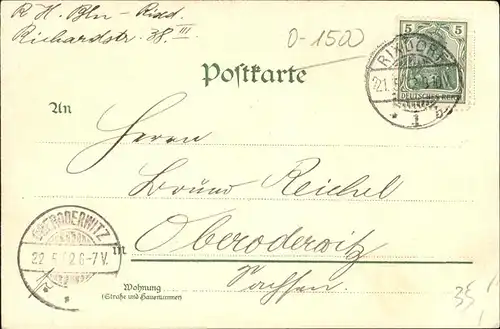 R H. Bln - Rixd.
Richardstr. 38 III
0-1500
5 5
DEUTSCHES REICH
RIXDORF
21.5.
* 1 b
Postkarte
An
Herrn
Bruno Reichel
in Oberoderwitz
Sachsen.
OBERODERWITZ
22.5.02.6-7V.
Wohnung
(Straße und Hausnummer)
35